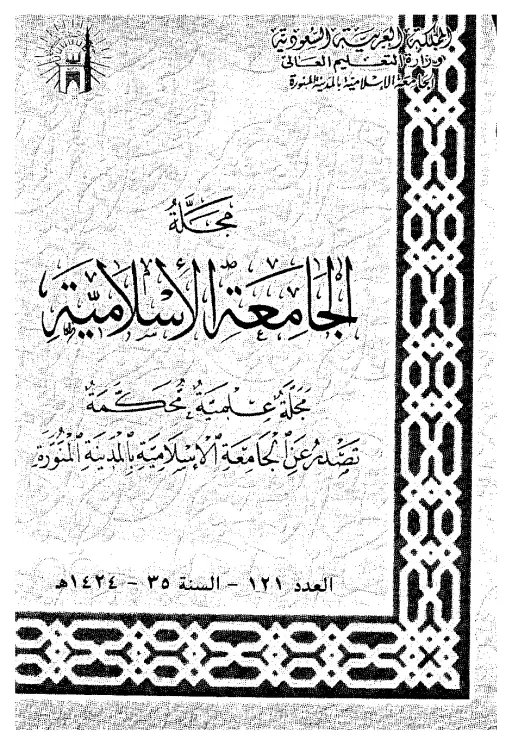 المملكة العربية السعودية
وزارة التعليم العالي
الجامعة الإسلامية بالمدينة المنورة
مَجَلَّةُ
الجَامِعَةِ الإِسْلَامِيَّةِ
مَجَلَّةٌ عِلْمِيَّةٌ مُحَكَّمَةٌ
تَصْدُرُ عَنِ الْجَامِعَةِ الْإِسْلَامِيَّةِ بِالْمَدِينَةِ الْمُنَوَّرَةِ
العدد ١٢١ - السنة ٣٥ - ١٤٢٤هـ